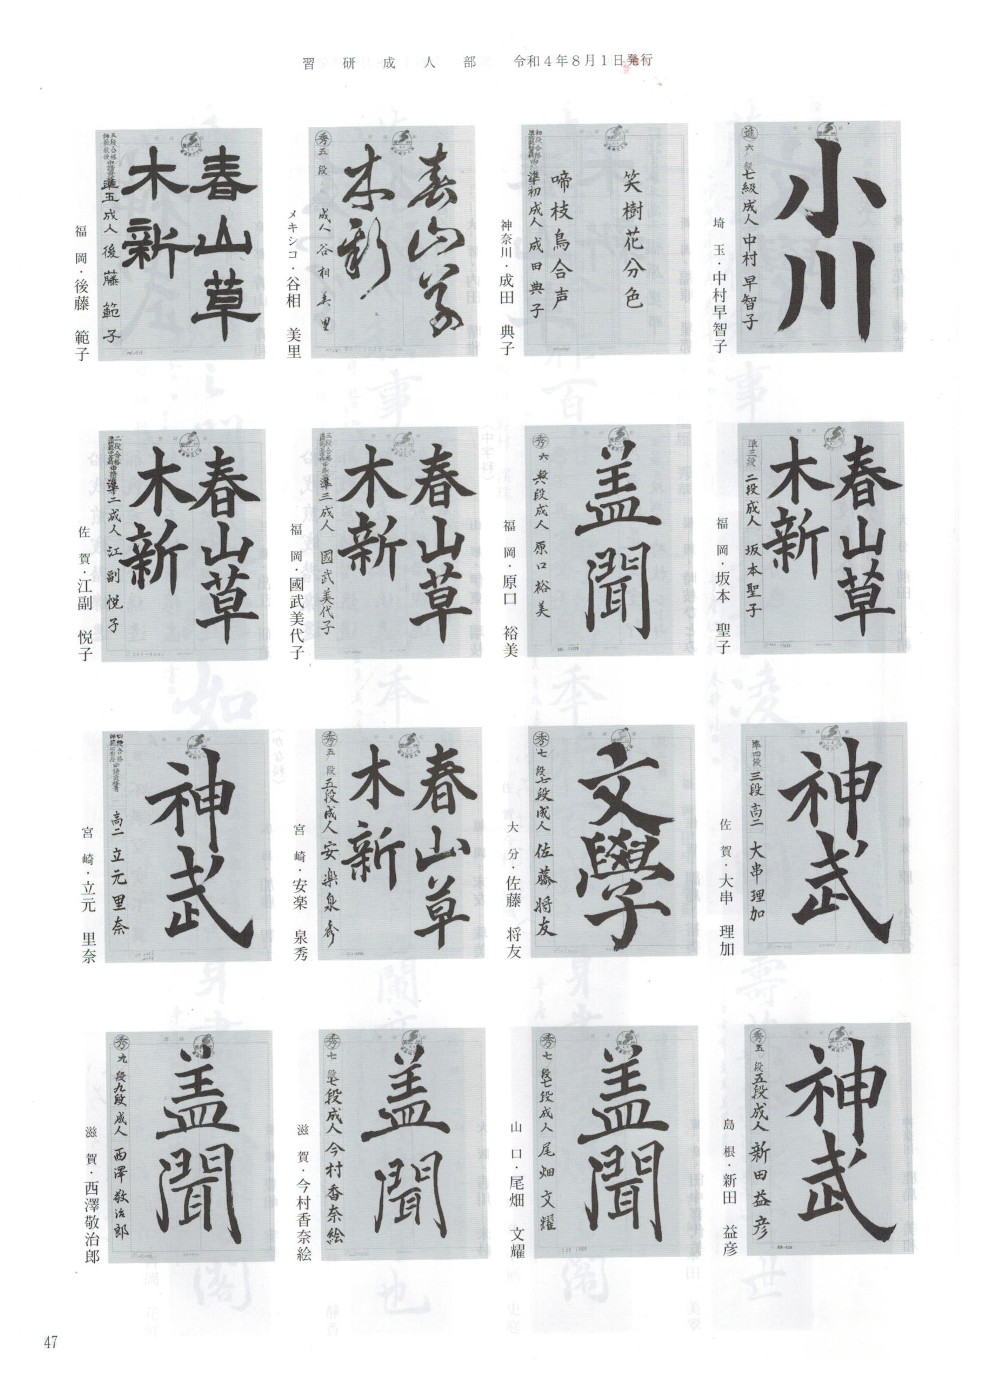 習研成人部 令和4年8月1日発行
小川
進六級
七級成人 中村早智子
埼玉・中村早智子
笑樹花分色
啼枝鳥合声
準初成人 成田典子
神奈川・成田 典子
春山草
木新
秀五段
成人 谷相美里
メキシコ・谷相 美里
春山草
木新
準五成人 後藤範子
福岡・後藤 範子
春山草
木新
準三段
二段成人 坂本聖子
福岡・坂本 聖子
蓋聞
秀六段
六段成人 原口裕美
福岡・原口 裕美
春山草
木新
準三成人 國武美代子
福岡・國武美代子
春山草
木新
準二成人 江副悦子
佐賀・江副 悦子
神武
準四段
三段 高二 大串理加
佐賀・大串 理加
文學
秀七段
七段成人 佐藤将友
大分・佐藤 将友
春山草
木新
秀五段
五段成人 安楽泉秀
宮崎・安楽 泉秀
神武
高二 立元里奈
宮崎・立元 里奈
神武
秀五段
五段成人 新田益彦
島根・新田 益彦
蓋聞
秀七段
七段成人 尾畑文耀
山口・尾畑 文耀
蓋聞
秀七段
七段成人 今村香奈絵
滋賀・今村香奈絵
蓋聞
秀九段
九段成人 西澤敬治郎
滋賀・西澤敬治郎
47